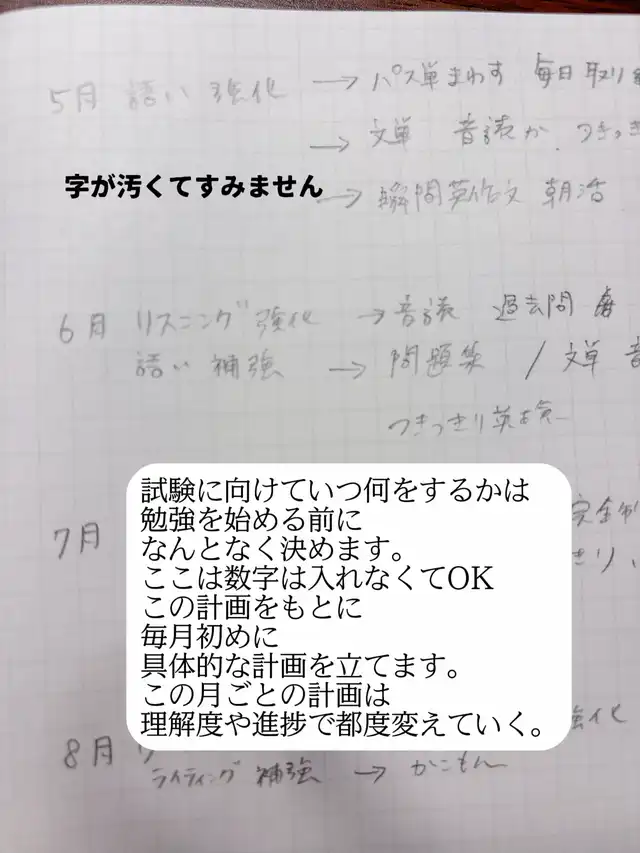 5月 語い 強化 → パス単まわす 毎日 取り
→ 文単 音読か つきっき
字が汚くてすみません
→ 瞬間英作文 朝活
6月 リスニング 強化 → 音読 過去問
語い 補強 → 問題集 / 文単 音
つきっきり英検
試験に向けていつ何をするかは
勉強を始める前に
なんとなく決めます。
ここは数字は入れなくてOK
この計画をもとに
毎月初めに
具体的な計画を立てます。
この月ごとの計画は
理解度や進捗で都度変えていく。
7月 完全
きり、
強化
8月 リ
ライティング 補強 → かこもん